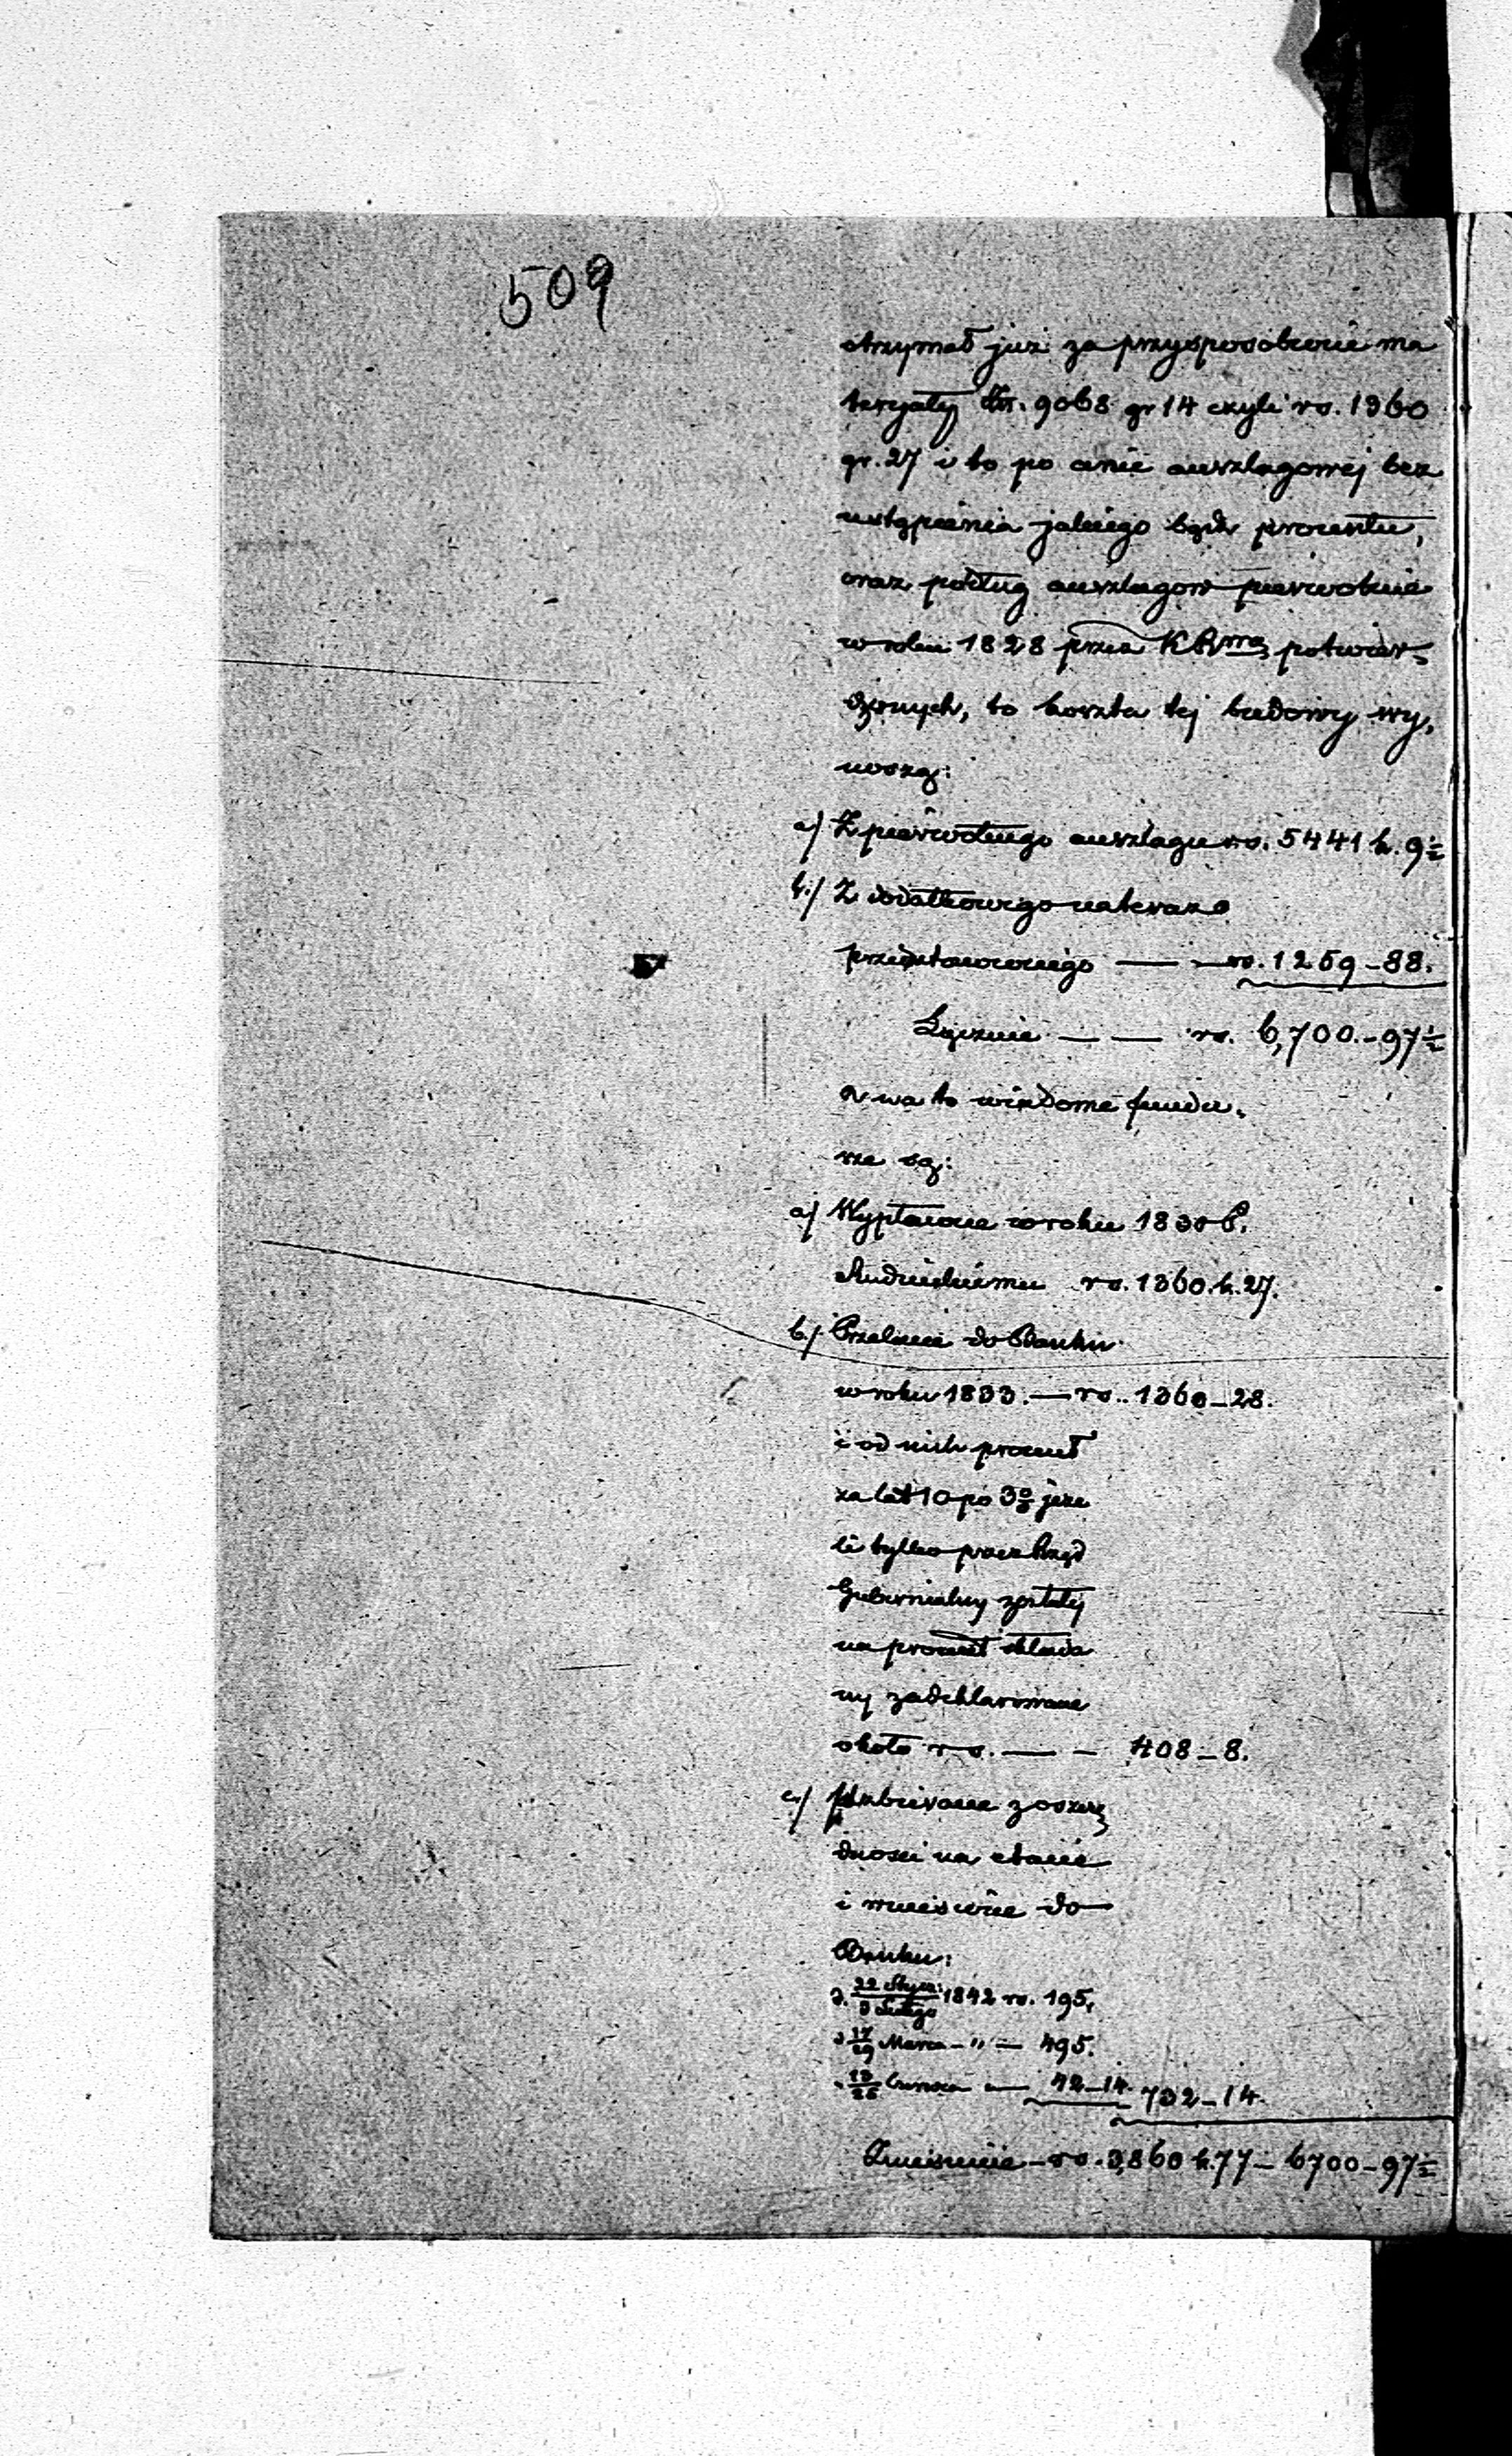 509
otrzymał już za przysposobione ma
teryały Złr. 9068 gr 14 czyli rs. 1360
gr. 27 i to po cenie anszlagowej bez
ustąpienia jakiego bądź procentu,
oraz podług anszlagów pierwotnie
w roku 1828 przez potwier-
dzonych, to koszta tej budowy wy,
noszą:
a/ Z pierwotnego anszlagu rs. 5441 k. 9½
b./ Z dodatkowego teraz
przedstawionego — — rs. 1259 – 88.
Łącznie — — rs. 6,700. – 97½
a na to wiadome fundu,
sze są:
a/ Wypłacone w roku 1830 P.
Rudnickiemu rs. 1360. k. 27.
b./ Przelane do Banku
w roku 1833. — rs.. 1360 – 28.
i od nich procent
za lat 10 po 3% jeże
li tylko przez Rząd
Gubernialny zostały
na procent składa
ny zadeklarowane
około rs. — – 408 – 8.
c./ Uzbierane z oszczę
dności na etacie
i wniesione do
Banku:
d. 22 Stycz: / 3 Lutego 1842 rs. 195,
d 17/29 Marca – " — 495.
" 13/25 Czerwca " — 42 – 14. 732 – 14.
Zmniejszenie – rs. 3,860 k. 77 – 6700 – 97½